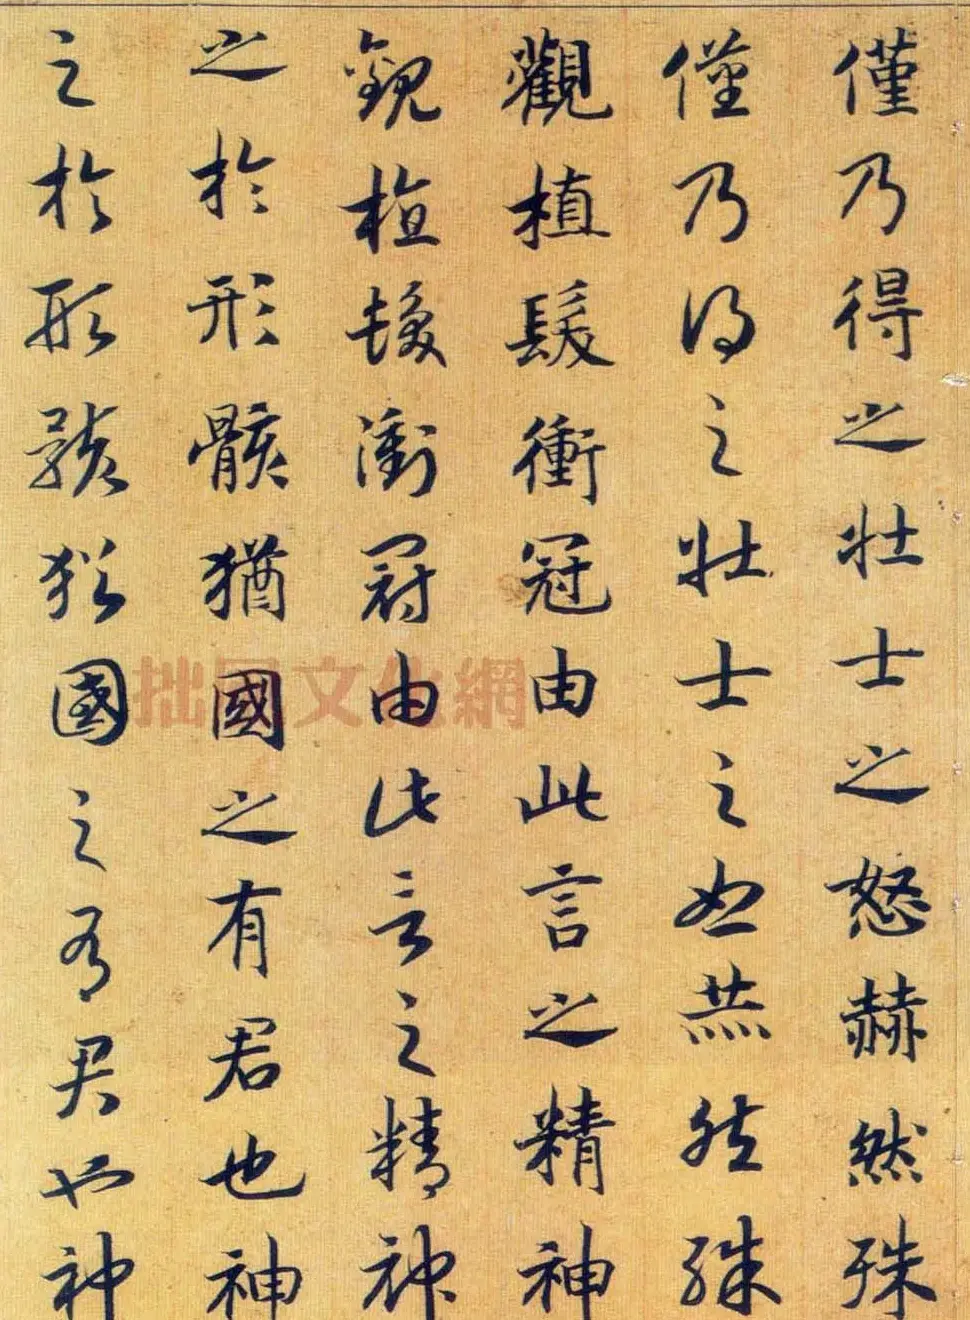 僅乃得之壯士之怒赫然殊
僅乃得之壯士之怒赫然殊
觀植髮衝冠由此言之精神
觀植髮衝冠由此言之精神
之於形骸猶國之有君也神
之於形骸猶國之有君也神
拙風文化網